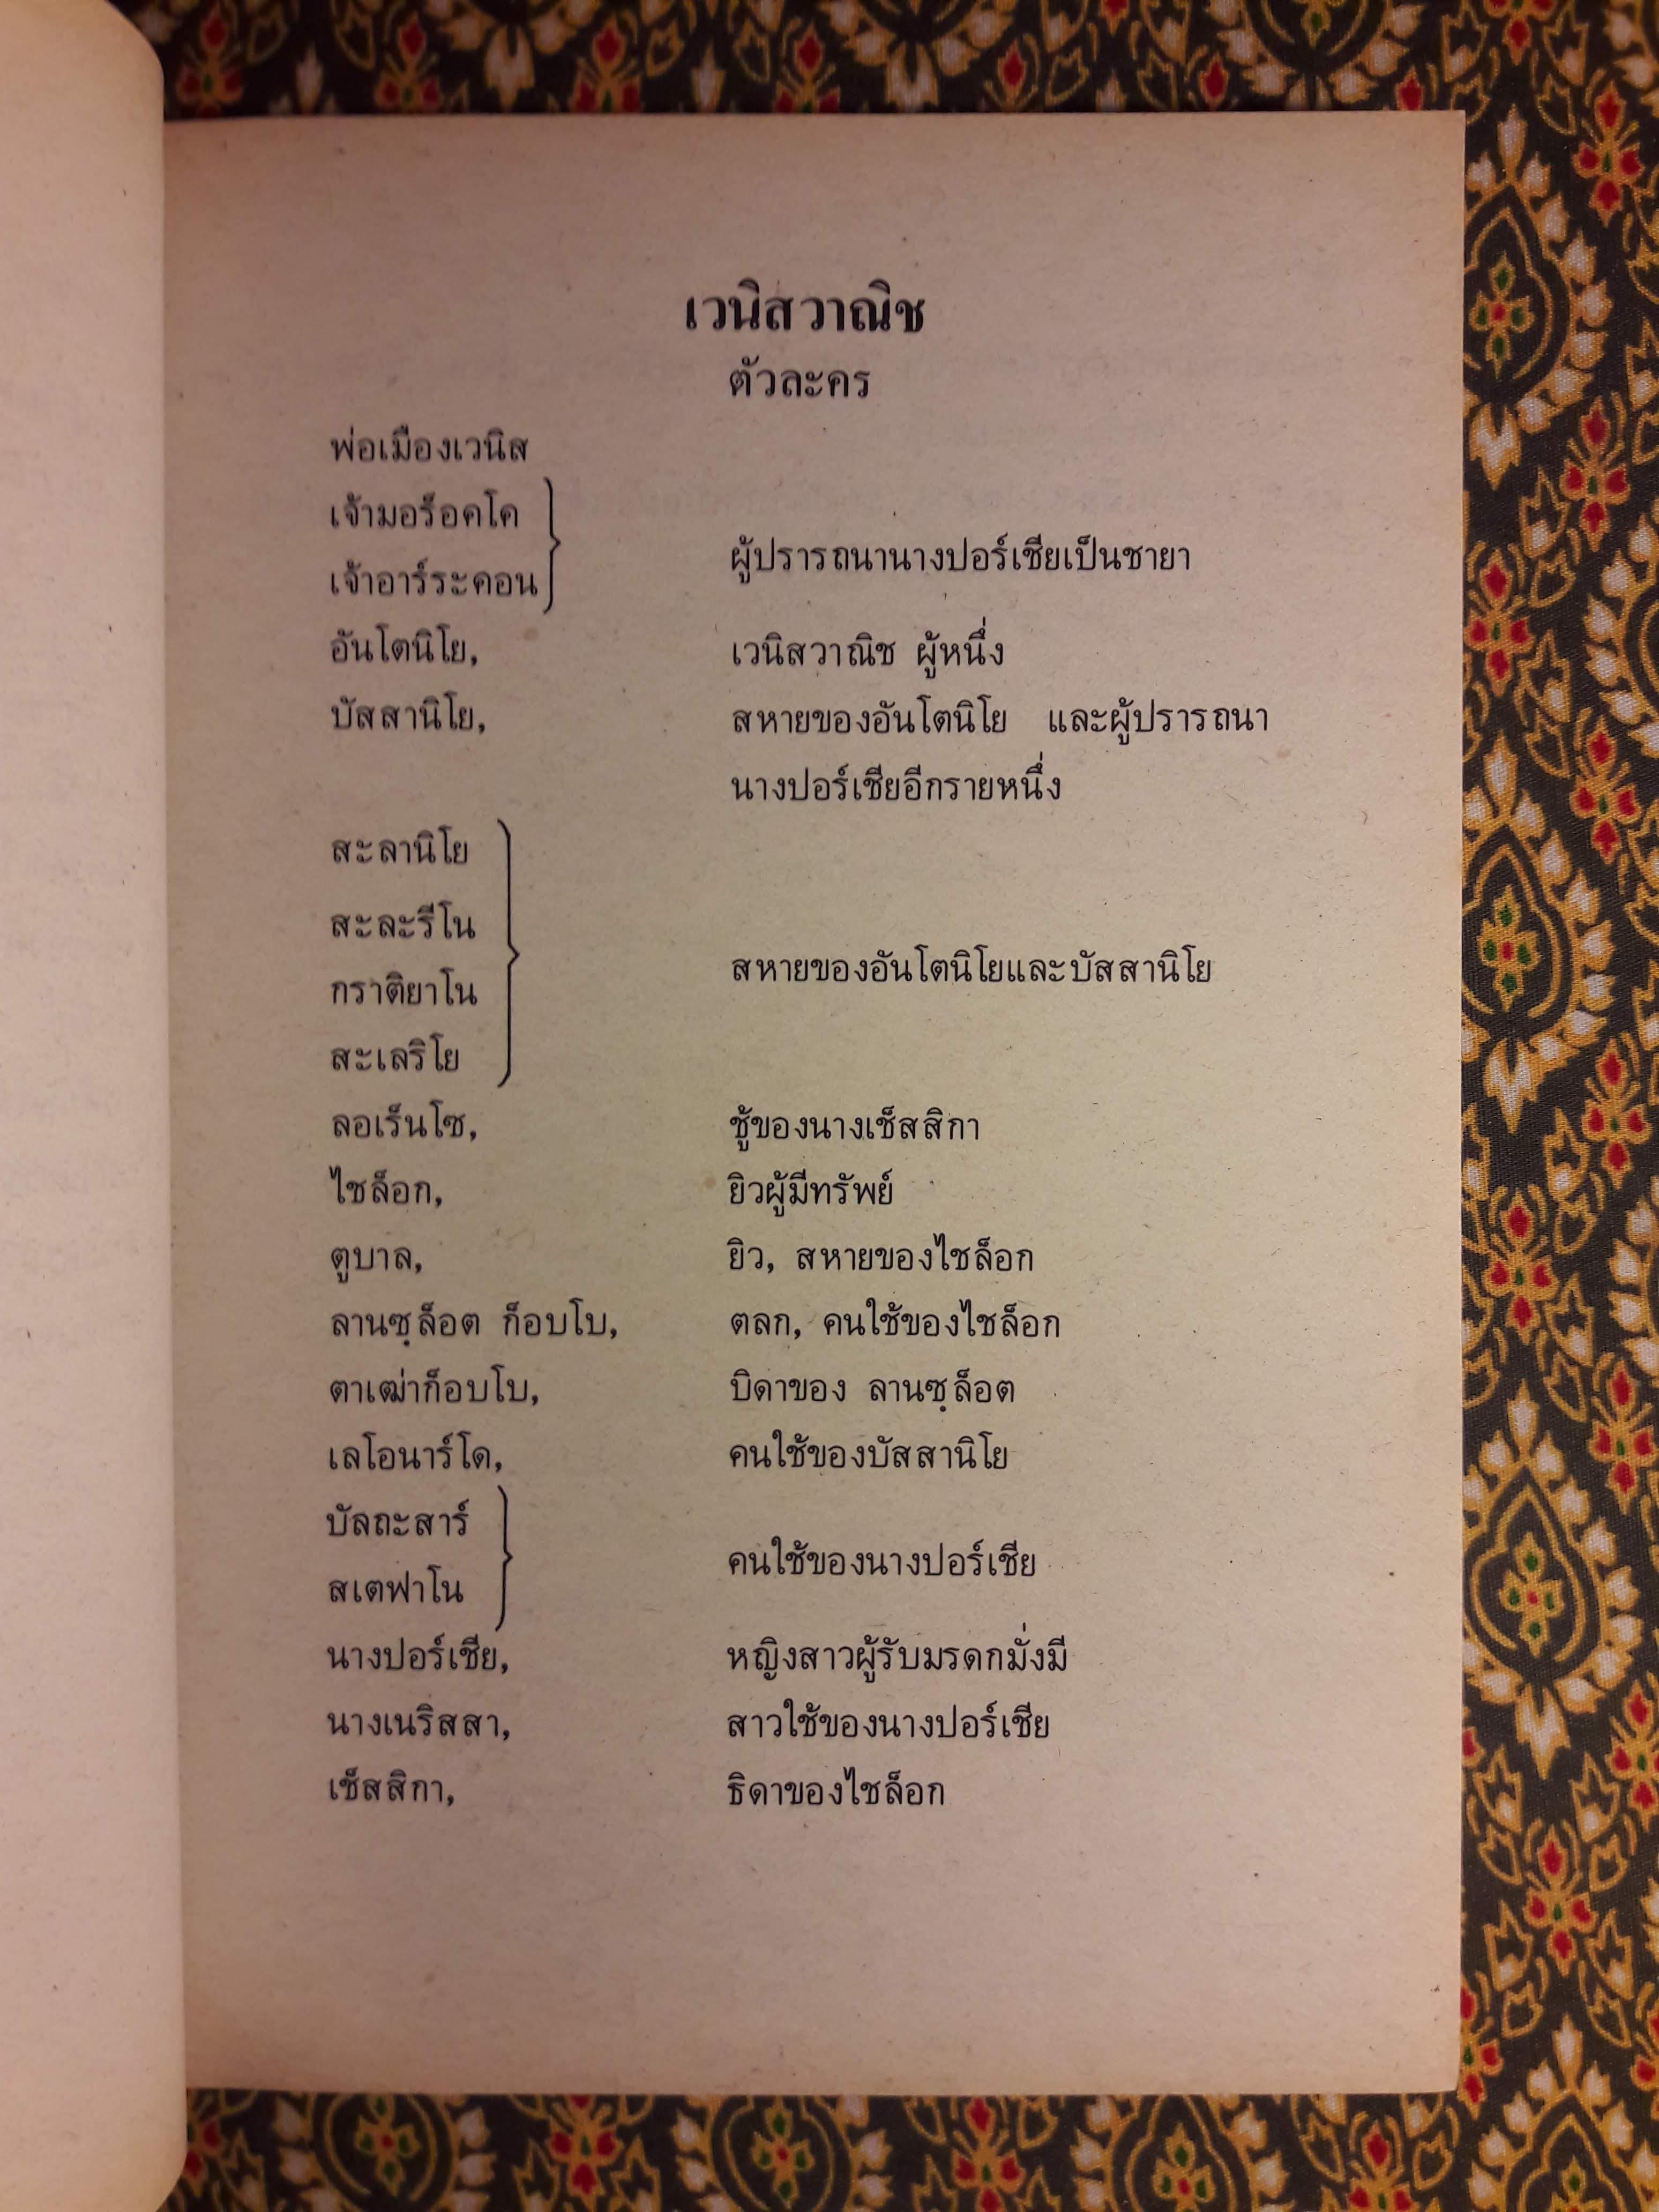 เวนิสวาณิช
ตัวละคร
พ่อเมืองเวนิส
เจ้ามอร็อคโค
เจ้าอาร์ระคอน
ผู้ปรารถนานางปอร์เชียเป็นชายา
อันโตนิโย, เวนิสวาณิช ผู้หนึ่ง
บัสสานิโย, สหายของอันโตนิโย และผู้ปรารถนา
นางปอร์เชียอีกรายหนึ่ง
สะลานิโย
สะละรีโน
กราติยาโน
สะเลริโย
สหายของอันโตนิโยและบัสสานิโย
ลอเร็นโซ, ชู้ของนางเช็สสิกา
ไชล็อก, ยิวผู้มีทรัพย์
ตูบาล, ยิว, สหายของไชล็อก
ลานซฺล็อต ก็อบโบ, ตลก, คนใช้ของไชล็อก
ตาเฒ่าก็อบโบ, บิดาของ ลานซฺล็อต
เลโอนาร์โด, คนใช้ของบัสสานิโย
บัลถะสาร์
สเตฟาโน
คนใช้ของนางปอร์เชีย
นางปอร์เชีย, หญิงสาวผู้รับมรดกมั่งมี
นางเนริสสา, สาวใช้ของนางปอร์เชีย
เช็สสิกา, ธิดาของไชล็อก